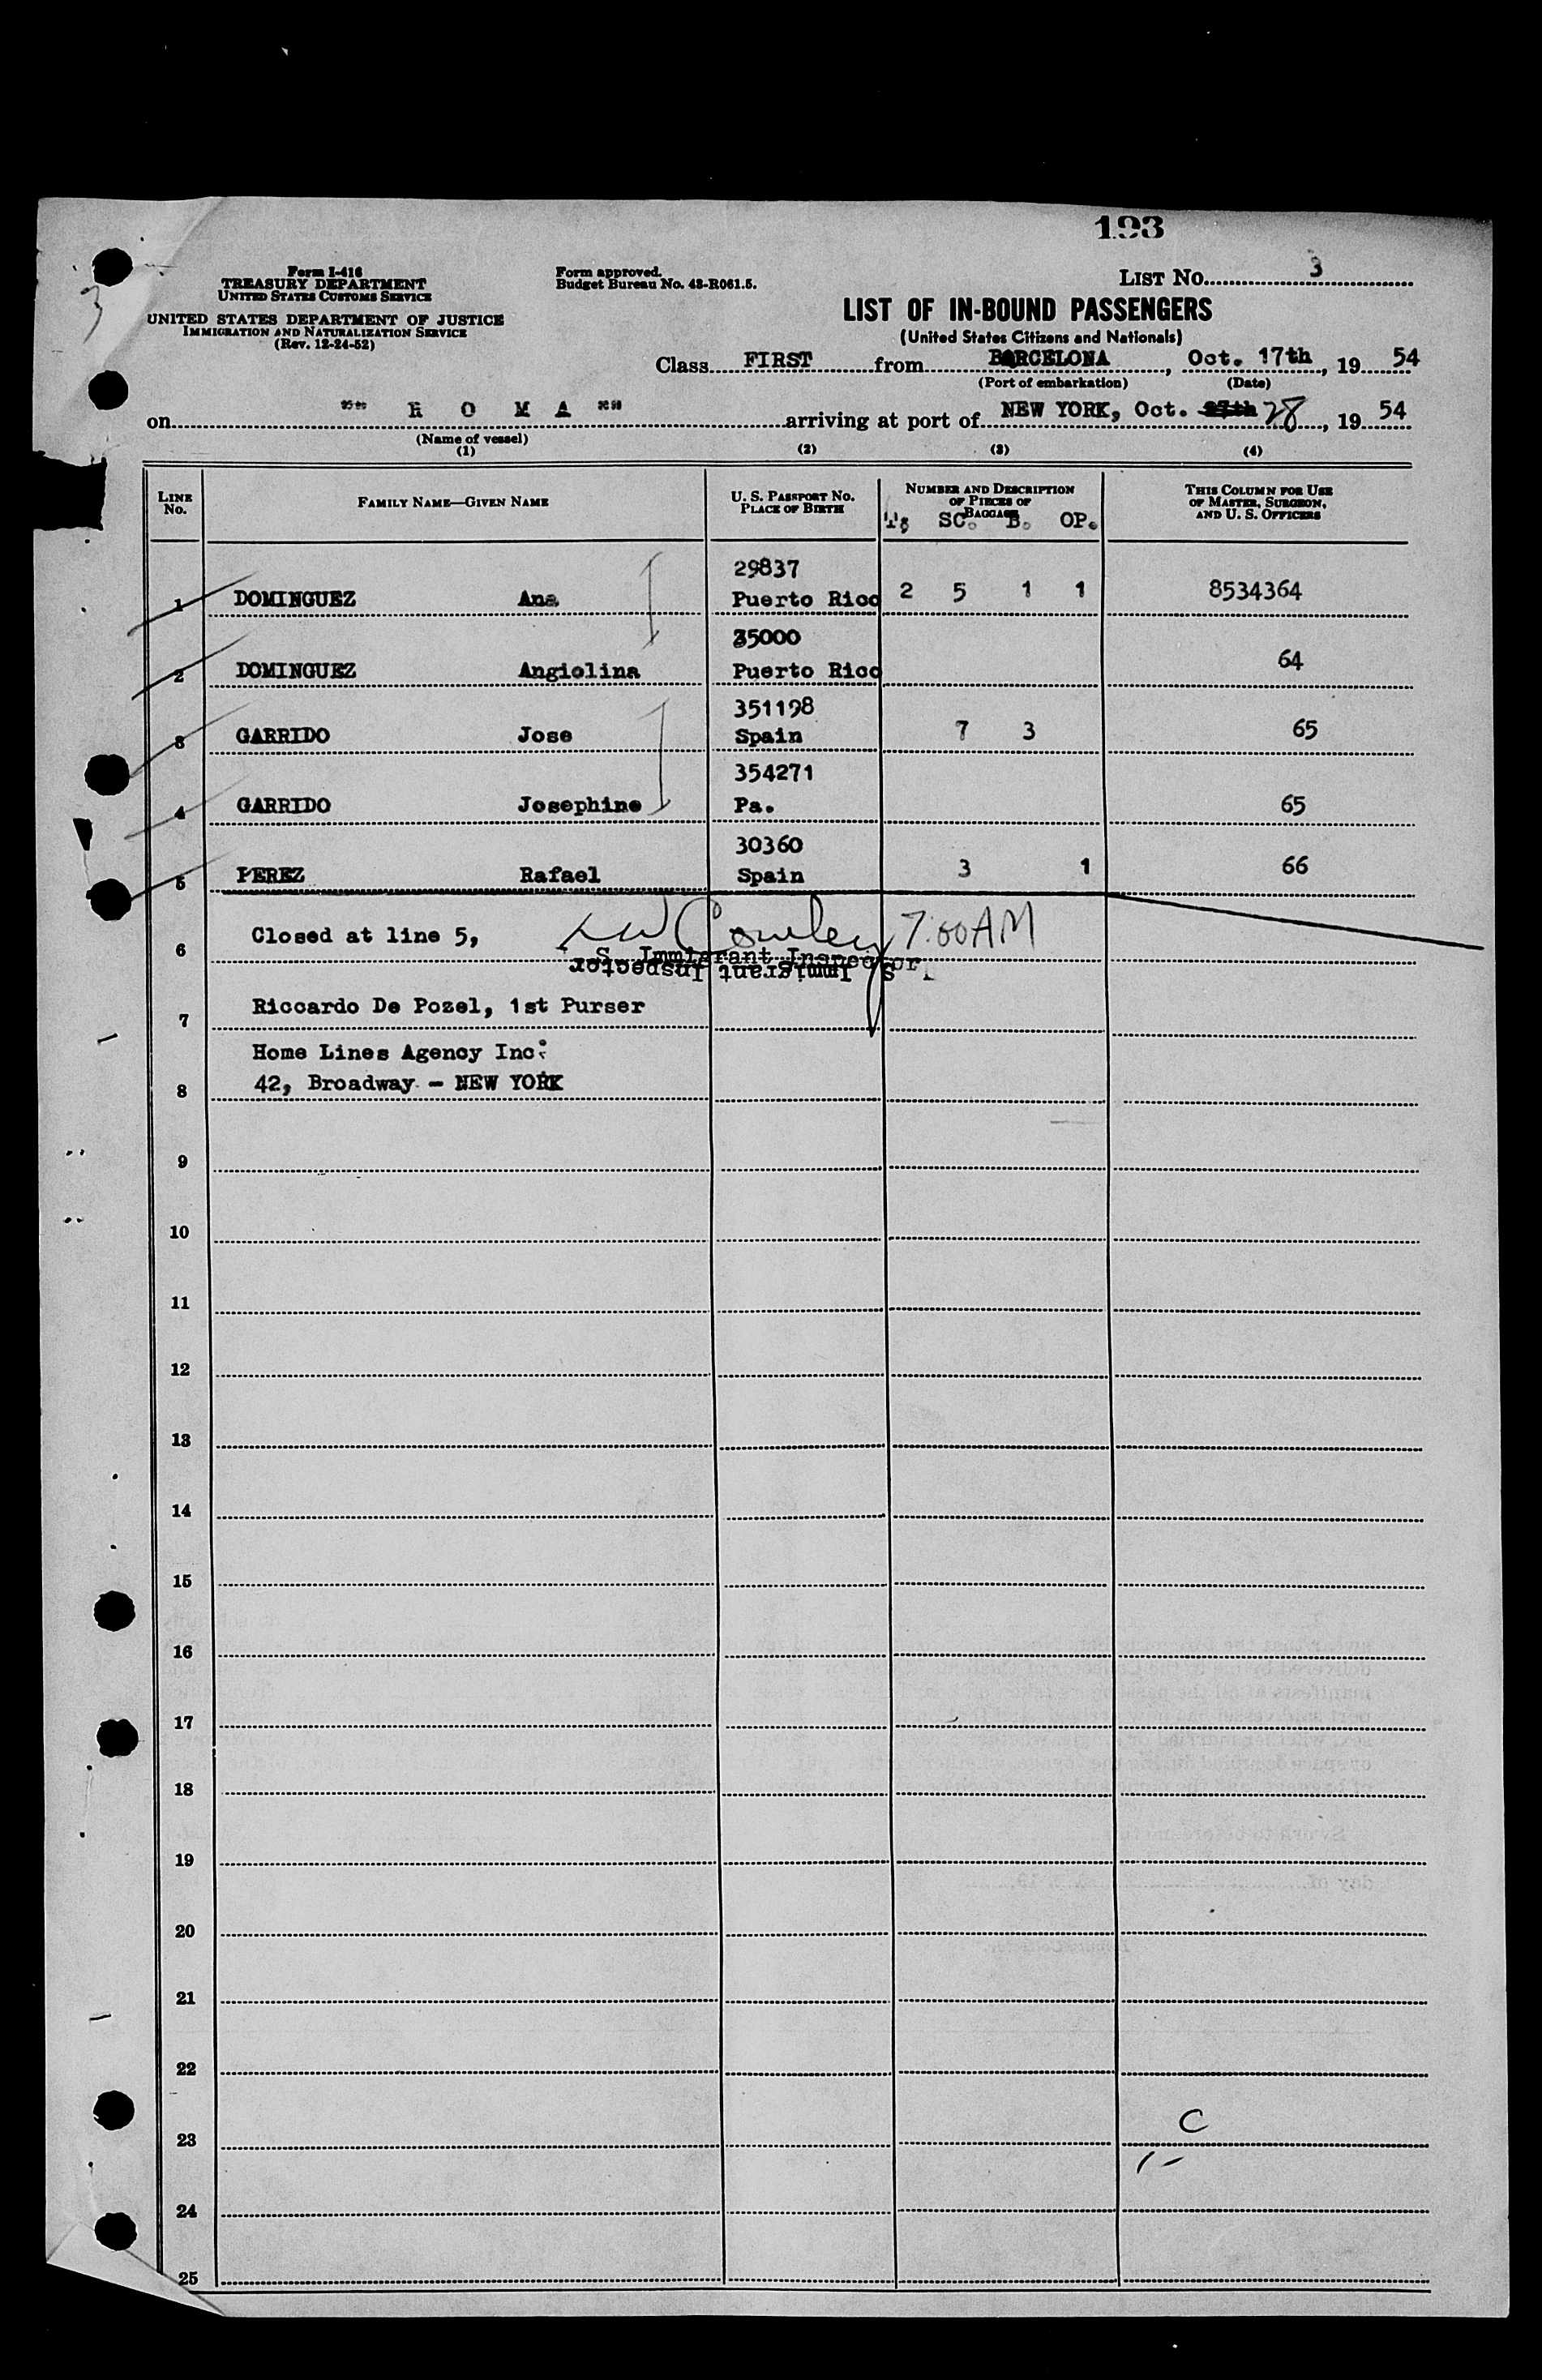 193
3
Form I-416
TREASURY DEPARTMENT
UNITED STATES CUSTOMS SERVICE
UNITED STATES DEPARTMENT OF JUSTICE
IMMIGRATION AND NATURALIZATION SERVICE
(Rev. 12-24-52)
Form approved.
Budget Bureau No. 43-R061.5.
LIST NO. 3
LIST OF IN-BOUND PASSENGERS
(United States Citizens and Nationals)
Class FIRST from BARCELONA, Oct. 17th, 19 54
(Port of embarkation) (Date)
on "" R O M A "" arriving at port of NEW YORK, Oct. 27th 28, 19 54
(Name of vessel)
(1) (2) (3) (4)
LINE No. FAMILY NAME—GIVEN NAME U. S. PASSPORT NO. PLACE OF BIRTH NUMBER AND DESCRIPTION OF PIECES OF BAGGAGE THIS COLUMN FOR USE OF MASTER, SURGEON, AND U. S. OFFICERS
T. SC. B. OP.
29837
1 DOMINGUEZ Ana Puerto Rico 2 5 1 1 8534364
35000
2 DOMINGUEZ Angiolina Puerto Rico 64
351198
3 GARRIDO Jose Spain 7 3 65
354271
4 GARRIDO Josephine Pa. 65
30360
5 PEREZ Rafael Spain 3 1 66
6 Closed at line 5, Cowley 7:00AM
S. Immigrant Inspector
S. Immigrant Inspector
7 Riccardo De Pozel, 1st Purser
Home Lines Agency Inc.
8 42, Broadway - NEW YORK
9
10
11
12
13
14
15
16
17
18
19
20
21
22
23 C
24
25